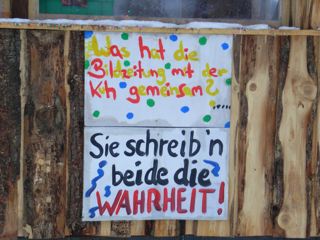 Was hat die
Bildzeitung mit der
Kuh gemeinsam?
Sie schreib'n
beide die
WAHRHEIT!